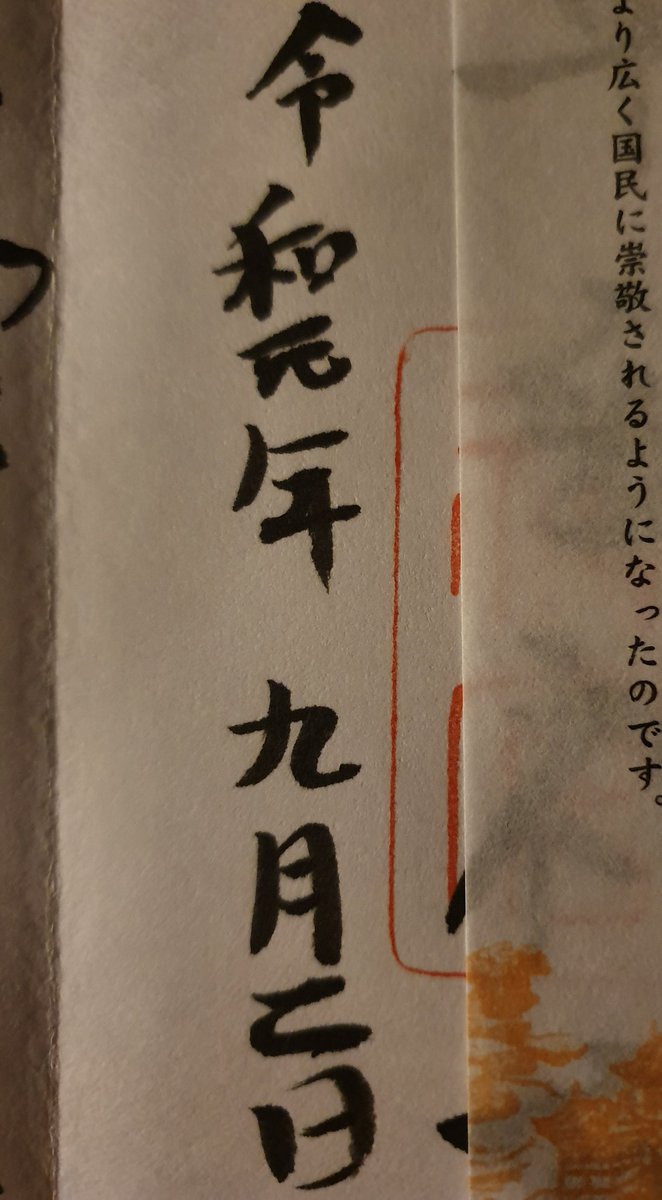 より広く国民に崇敬されるようになったのです。
令和元年 九月二日